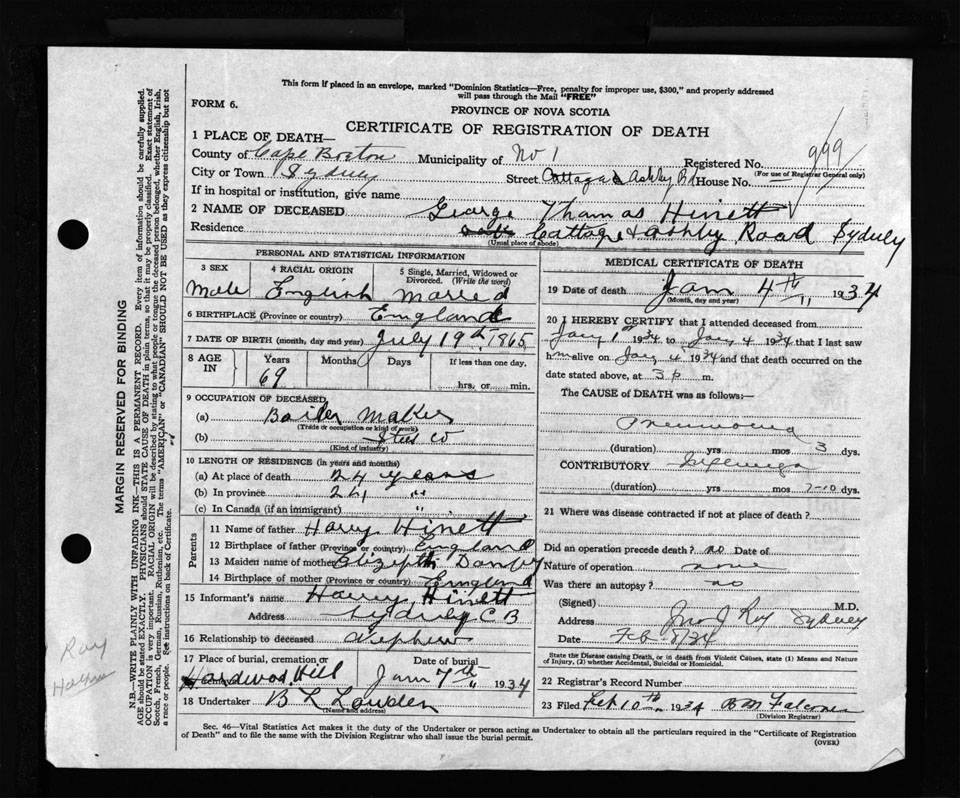 This form if placed in an envelope, marked "Dominion Statistics—Free, penalty for improper use, $300," and properly addressed
will pass through the Mail "FREE"
FORM 6.
PROVINCE OF NOVA SCOTIA
CERTIFICATE OF REGISTRATION OF DEATH
1 PLACE OF DEATH—
County of Cape Breton Municipality of No 1 Registered No. 999
(For use of Registrar General only)
City or Town Sydney Street Cottage & Ashby Rd House No. —
If in hospital or institution, give name
2 NAME OF DECEASED George Thomas Hinett
Residence Cottage & Ashby Road Sydney
(Usual place of abode)
PERSONAL AND STATISTICAL INFORMATION
3 SEX 4 RACIAL ORIGIN 5 Single, Married, Widowed or
Divorced. (Write the word)
Male English Married
6 BIRTHPLACE (Province or country) England
7 DATE OF BIRTH (month, day and year) July 19th, 1865
8 AGE IN Years Months Days If less than one day.
69 hrs. or min.
9 OCCUPATION OF DECEASED
(a) Boiler Maker
(Trade or occupation or kind of work)
(b) Steel Co
(Kind of industry)
10 LENGTH OF RESIDENCE (in years and months)
(a) At place of death 24 years
(b) In province 24 "
(c) In Canada (if an immigrant) "
Parents
11 Name of father Harry Hinett
12 Birthplace of father (Province or country) England
13 Maiden name of mother Elizabeth
14 Birthplace of mother (Province or country) England
15 Informant's name Harry Hinett
Address Sydney C B
16 Relationship to deceased Nephew
17 Place of burial, cremation or Date of burial
Hardwood Hill Jan 7th " 1934
18 Undertaker B L Lowden
(Name and address)
MEDICAL CERTIFICATE OF DEATH
19 Date of death Jan 4th " 1934
(Month, day and year)
20 I HEREBY CERTIFY that I attended deceased from
Jany 1 1934 to Jany 4 1934 that I last saw
him alive on Jany 4 1934 and that death occurred on the
date stated above, at 3 p m.
The CAUSE of DEATH was as follows:—
Pneumonia
(duration) yrs mos 3 dys.
CONTRIBUTORY Influenza
(duration) yrs mos 7-10 dys.
21 Where was disease contracted if not at place of death?
Did an operation precede death? no Date of
Nature of operation none
Was there an autopsy? no
(Signed) M.D.
Address Jno J Roy Sydney
Date Feb 8/34
State the Disease causing Death, or in death from Violent Causes, state (1) Means and Nature
of Injury, (2) whether Accidental, Suicidal or Homicidal.
22 Registrar's Record Number
23 Filed Feb 10th 1934 B M Falconer
(Division Registrar)
Sec. 46—Vital Statistics Act makes it the duty of the Undertaker or person acting as Undertaker to obtain all the particulars required in the "Certificate of Registration
of Death" and to file the same with the Division Registrar who shall issue the burial permit.
(OVER)
MARGIN RESERVED FOR BINDING
N.B.—WRITE PLAINLY WITH UNFADING INK—THIS IS A PERMANENT RECORD. Every item of information should be carefully supplied.
AGE should be stated EXACTLY. PHYSICIANS should STATE CAUSE OF DEATH in plain terms, so that it may be properly classified. Exact statement of
OCCUPATION is very important. RACIAL ORIGIN will be described by stating to what people or tongue the deceased person belonged, whether English, Irish,
Scotch, French, German, Russian, Ruthenian, etc. The terms "AMERICAN" or "CANADIAN" SHOULD NOT BE USED as they express citizenship but not
a race or people. See instructions on back of Certificate.
Ray